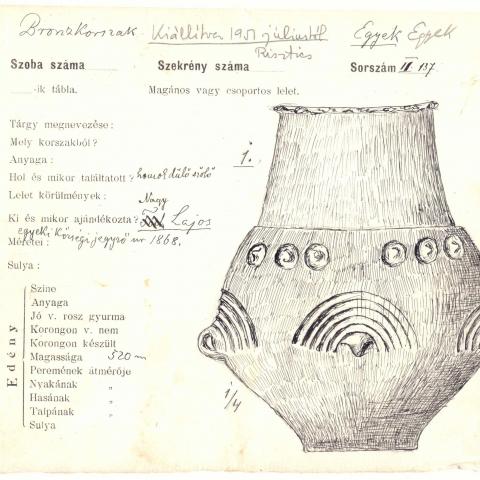 Bronzkorszak Kiállítva 1951 júliustól Egyek Egyek
Risztics
Szoba száma Szekrény száma Sorszám II 137
-ik tábla. Magános vagy csoportos lelet.
Tárgy megnevezése:
Mely korszakból?
Anyaga: 1.
Hol és mikor találtatott? homok dülő szőlő
Lelet körülmények: Nagy
Ki és mikor ajándékozta? Lajos
egyeki községi jegyző úr 1868.
Méretei:
Sulya:
Edény
Szine
Anyaga
Jó v. rosz gyurma
Korongon v. nem
Korongon készült
Magassága 520 m
Peremének átmérője
Nyakának "
Hasának "
Talpának "
Sulya
1/4